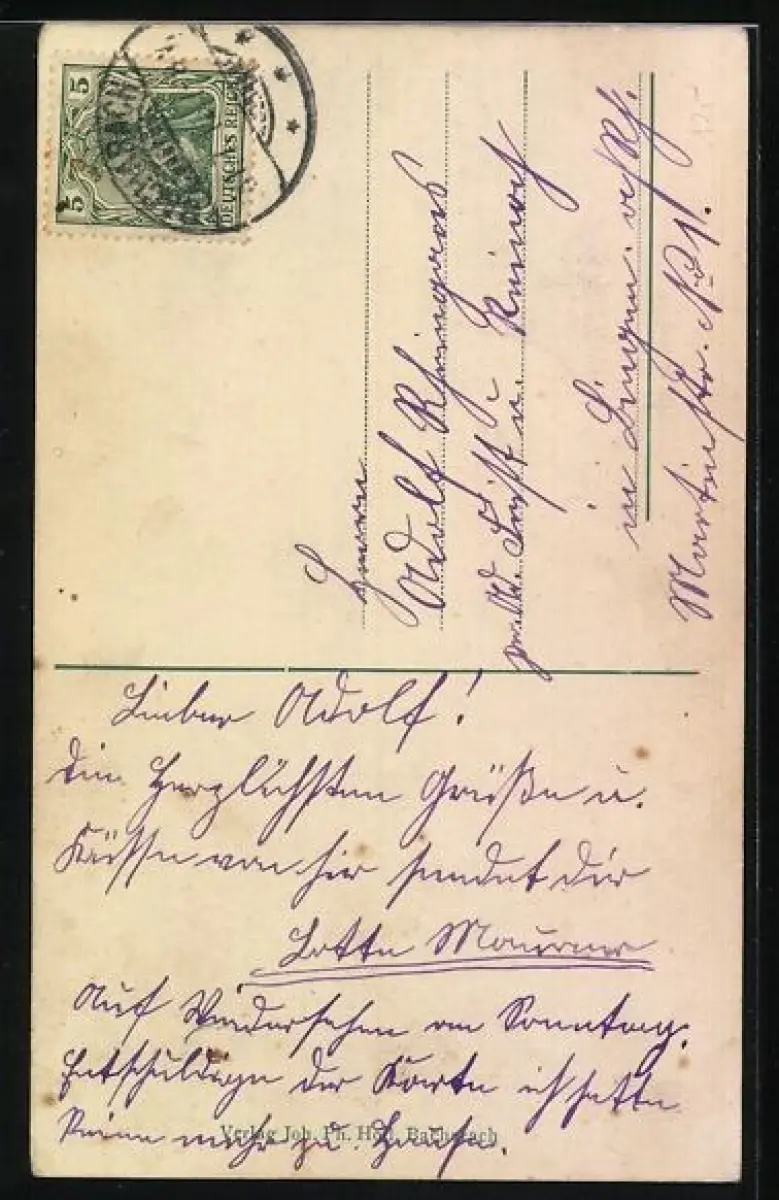 5 DEUTSCHES REICH 5
Herrn
Adolf Rheingans
in Bingen a/Rh.
Martinstr. No 1.
Lieber Adolf!
Die Herzlichsten Grüße u.
Küsse von hir sendet dir
Lotte Maurer
Auf Wiedersehen am Sonntag.
Entschuldige der Karte ich hatte
keine mehr zu Hause.
Verlag Joh. Ph. Bacharach